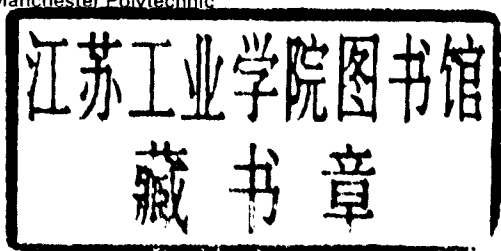 Manchester Polytechnic
江苏工业学院图书馆
藏书章